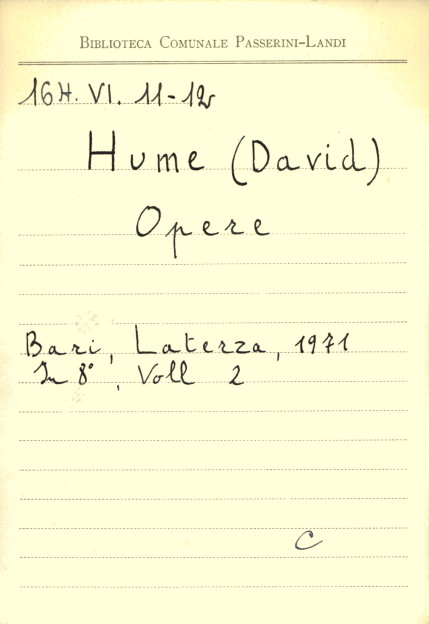 BIBLIOTECA COMUNALE PASSERINI-LANDI
16H. VI. 11-12
Hume (David)
Opere
Bari, Laterza, 1971
In 8°, Voll 2
C